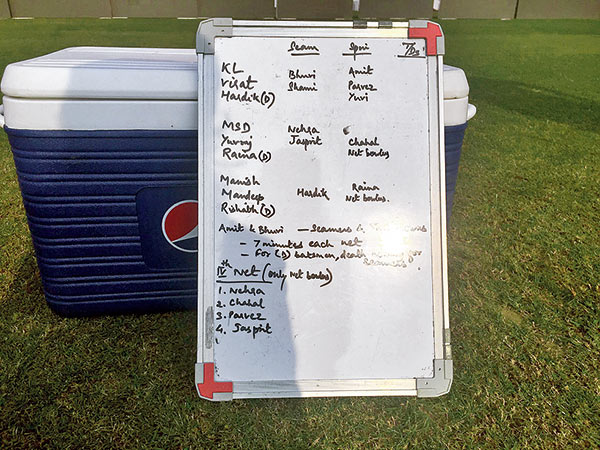 Seam Spin T/Ds
KL Bhuvi Amit
Virat Shami Parvez
Hardik (D) Yuvi
MSD Nehra
Yuvraj Jasprit Chahal
Raina (D) Net bowlers
Manish Raina
Mandeep Hardik Net bowlers.
Rishabh (D)
Amit & Bhuvi - Seamers &
- 7 minutes each net
- For (D) batsmen, death for
IVth Net (only Net bowlers)
1. Nehra
2. Chahal
3. Parvez
4. Jasprit